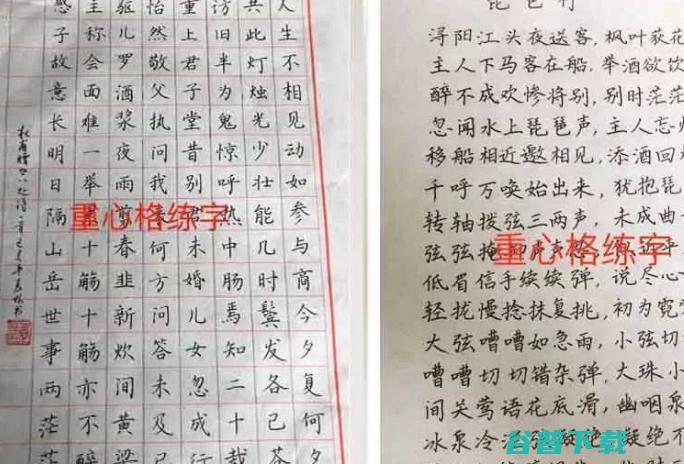 人生不相见动如参与商今夕复何夕
共此灯烛光少壮能几时鬓发各已苍
访旧半为鬼惊呼热中肠焉知二十载
重上君子堂昔别君未婚儿女忽成行
怡然敬父执问我来何方问答未及已
驱儿罗酒浆夜雨剪春韭新炊间黄粱
主称会面难一举累十觞十觞亦不醉
感子故意长明日隔山岳世事两茫茫
杜甫赠卫八处士诗一首
重心格练字
琵琶行
浔阳江头夜送客,枫叶荻花
主人下马客在船,举酒欲饮
醉不成欢惨将别,别时茫茫
忽闻水上琵琶声,主人忘
移船相近邀相见,添酒回
千呼万唤始出来,犹抱琵
转轴拨弦三两声,未成曲
弦弦掩抑声声思,似诉平
低眉信手续续弹,说尽心
轻拢慢捻抹复挑,初为霓
大弦嘈嘈如急雨,小弦切
嘈嘈切切错杂弹,大珠小
间关莺语花底滑,幽咽泉
冰泉冷涩弦凝绝,凝绝不
重心格练字
谷普下载